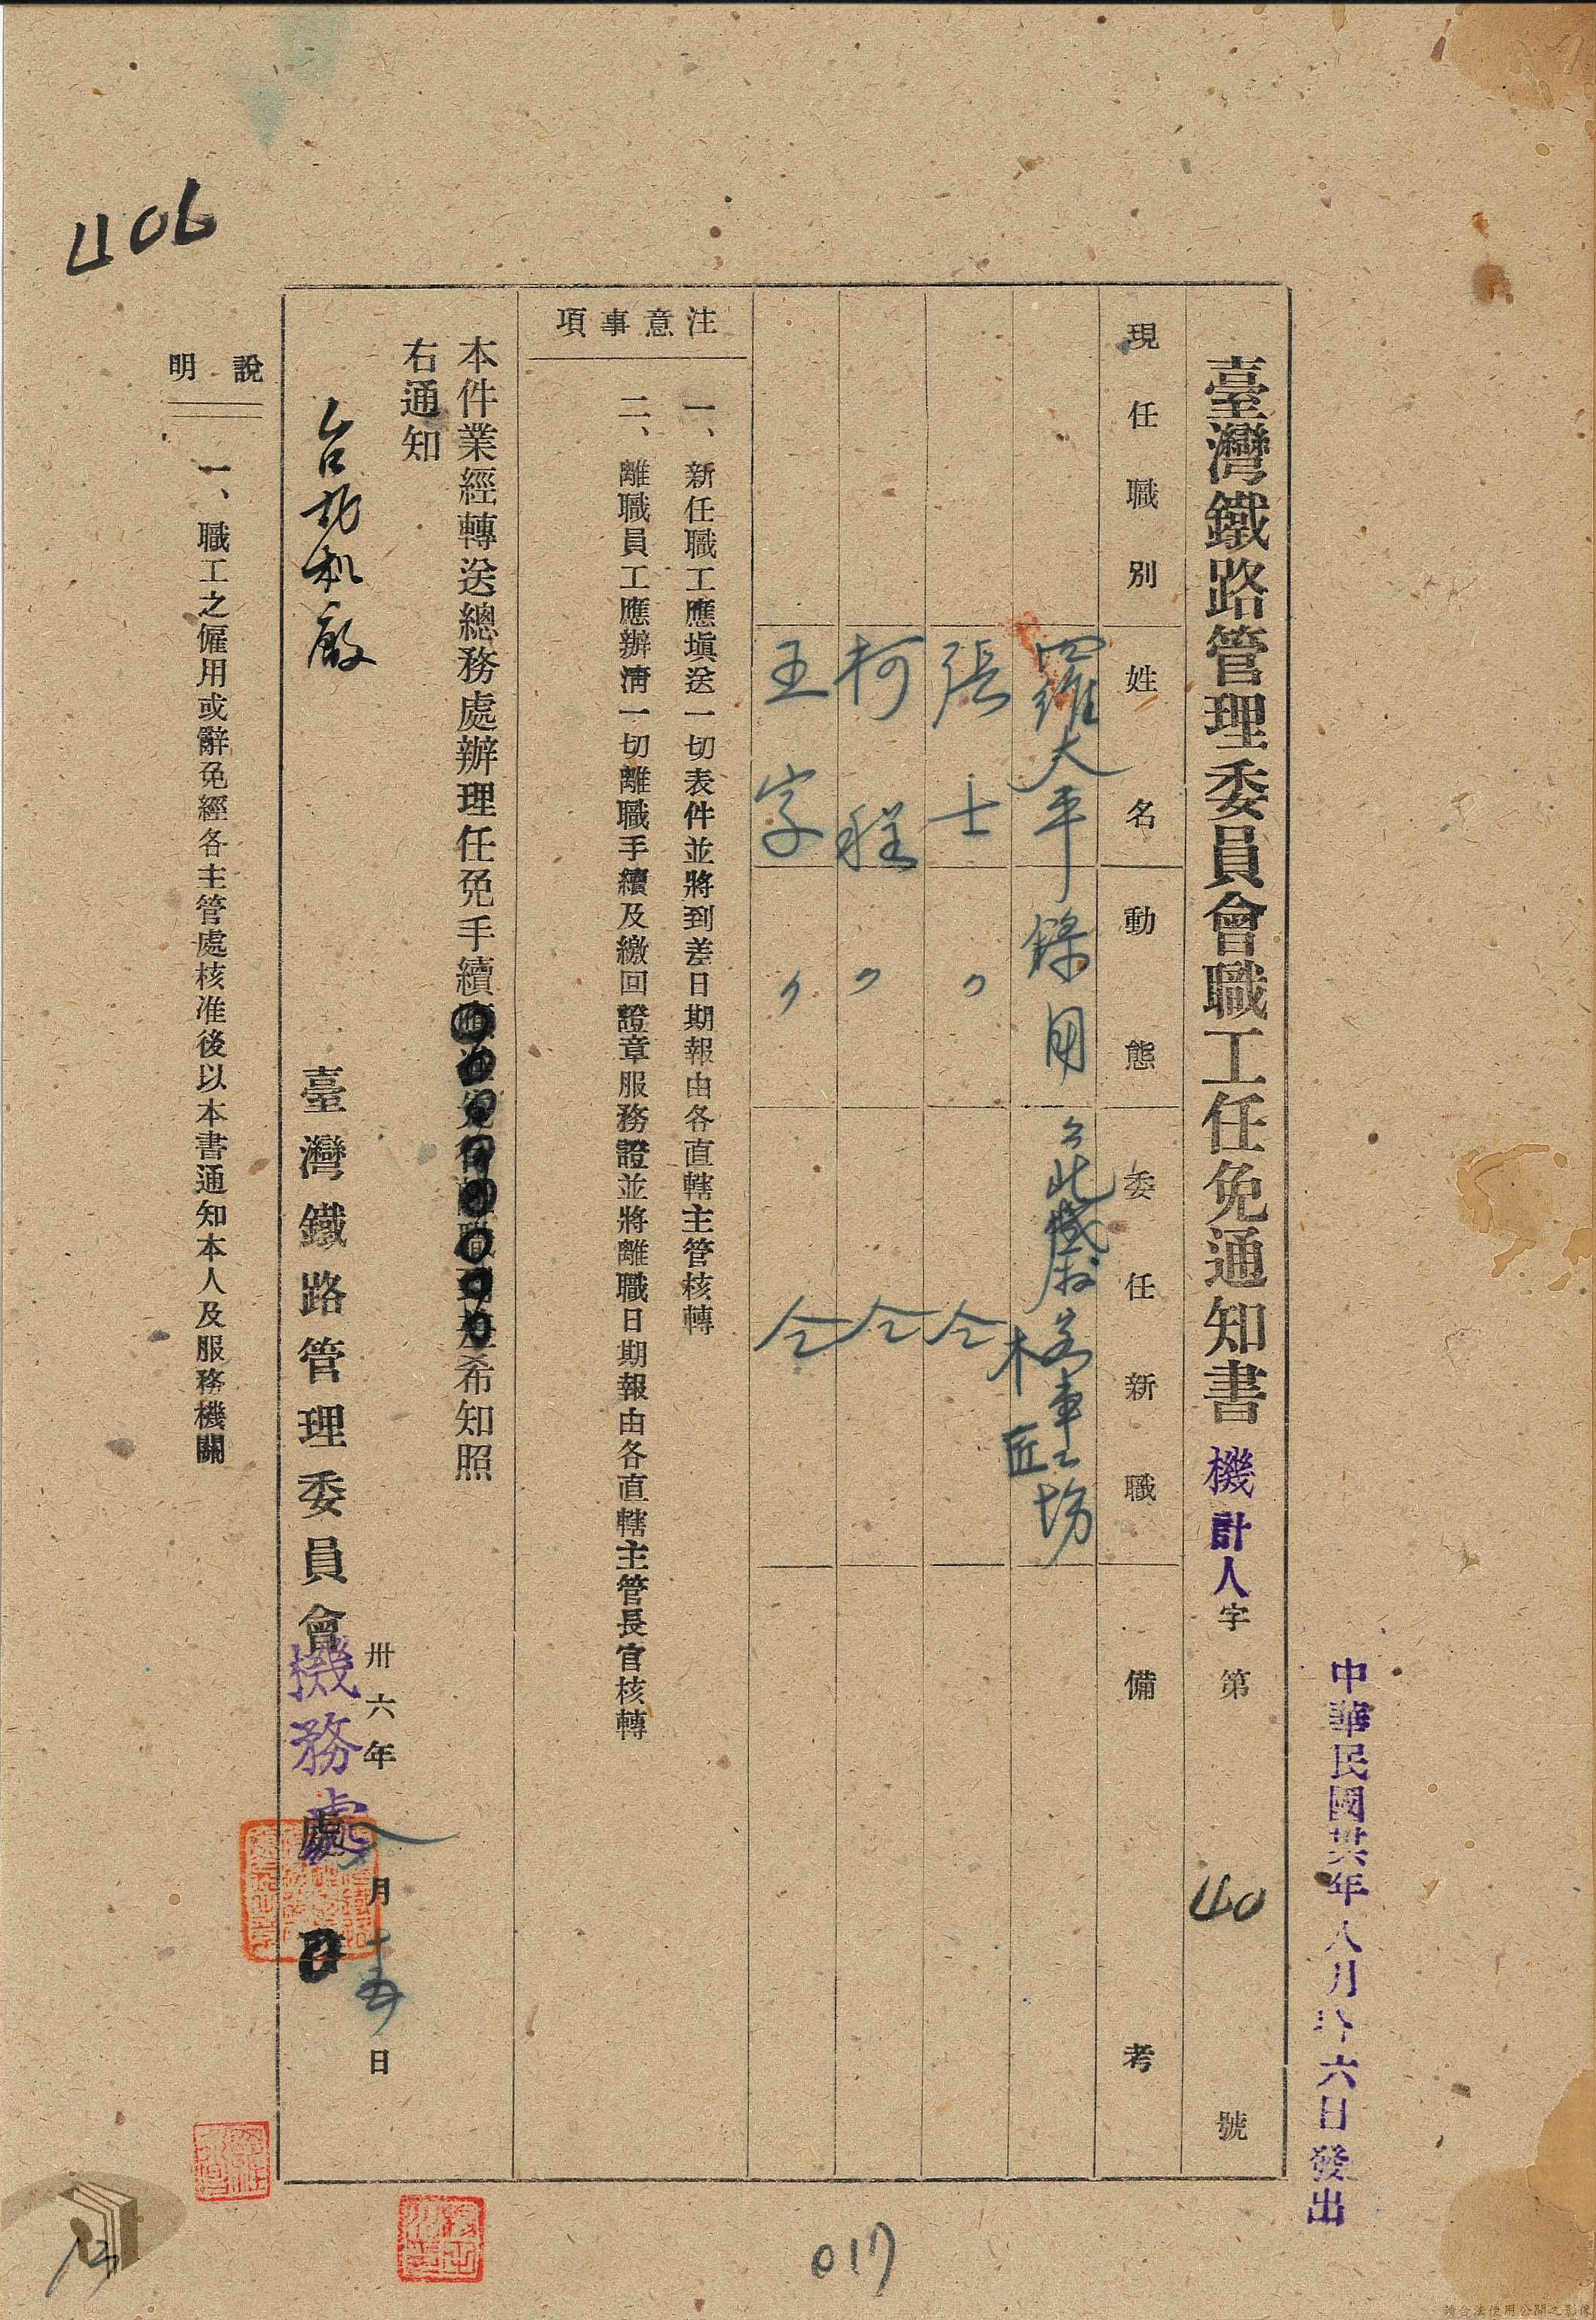 中華民國卅六年八月廿六日發出
臺灣鐵路管理委員會職工任免通知書 機計人字第40號
現任職別 姓名 動態 委任新職 備考
羅大平 錄用 台北機廠客車工坊
木匠
張士 〃 仝
柯程 〃 仝
王字 〃 仝
注意事項
一、新任職工應塡送一切表件並將到差日期報由各直轄主管核轉
二、離職員工應辦淸一切離職手續及繳回證章服務證並將離職日期報由各直轄主管長官核轉
本件業經轉送總務處辦理任免手續希知照
右通知
台北机廠
卅六年八月十五日
臺灣鐵路管理委員會機務處
說明
一、職工之僱用或辭免經各主管處核准後以本書通知本人及服務機關
406
017
13
請合法使用公開之影像